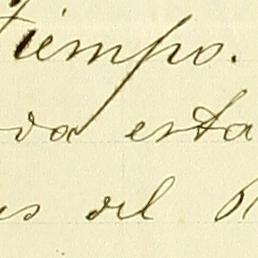 Tiempo.
da esta
us del